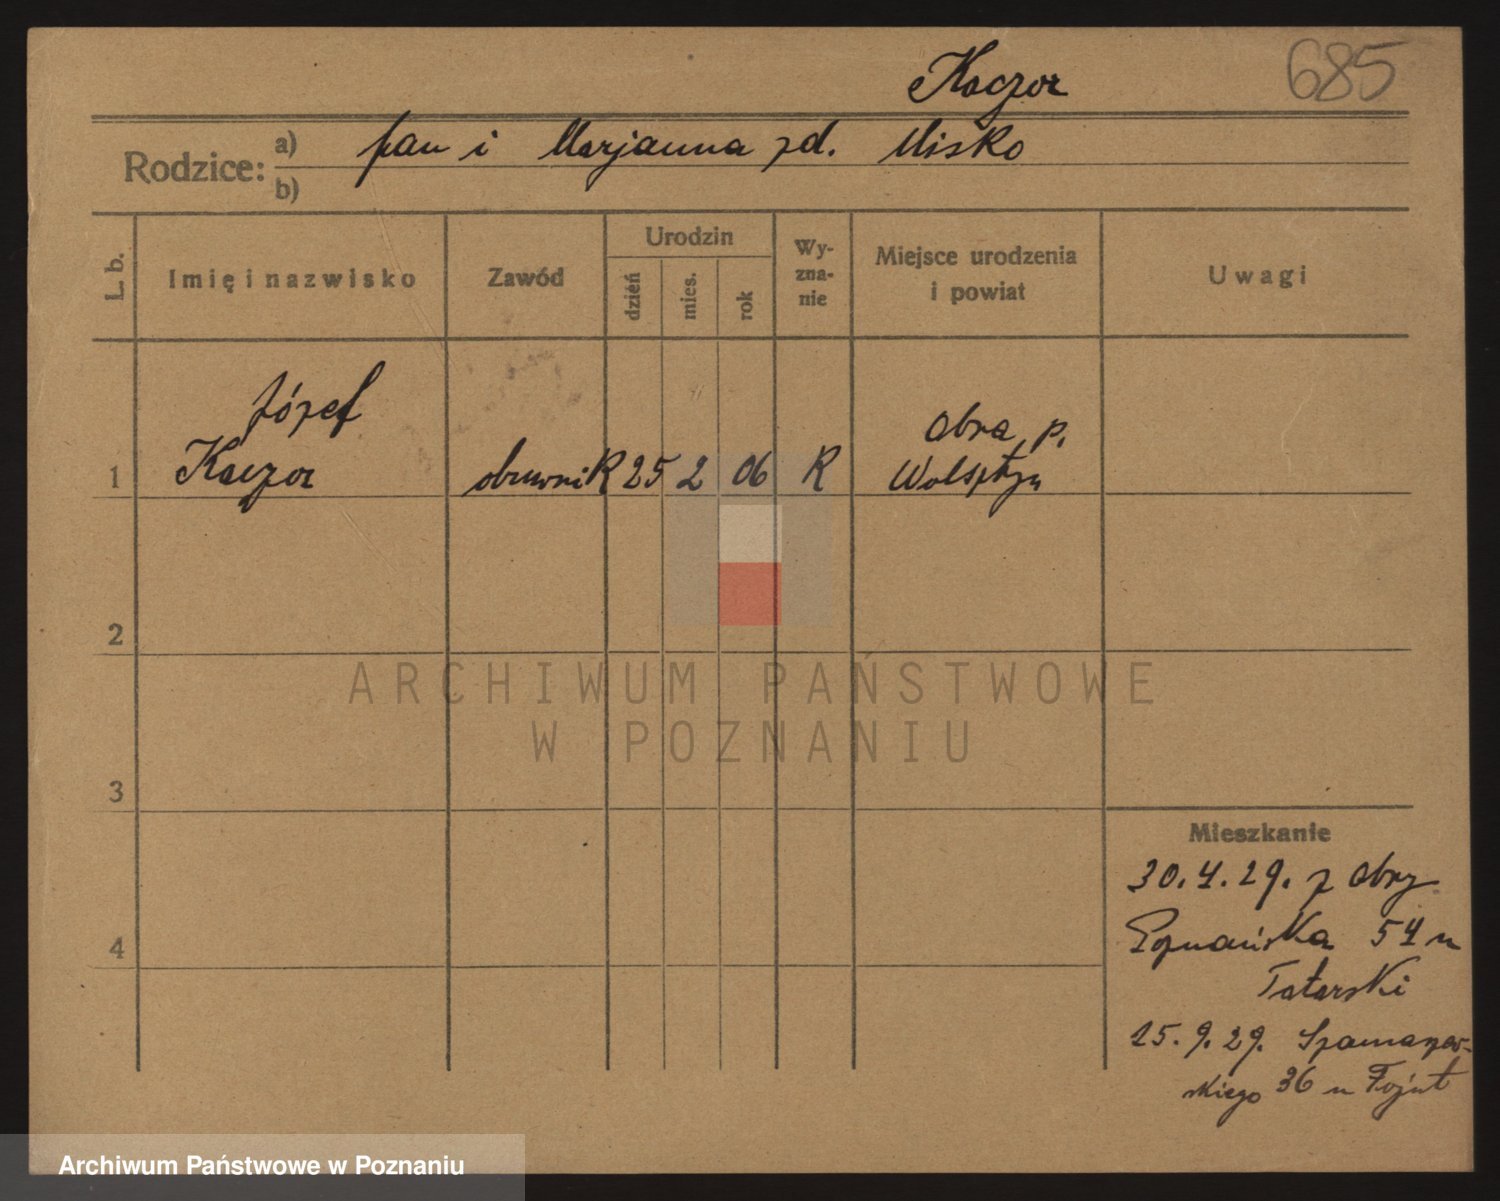 685
Kaczor
Rodzice: a) Jan i Marjanna zd. Misko
b)
L. b. Imię i nazwisko Zawód Urodzin dzień mies. rok Wy-zna-nie Miejsce urodzenia i powiat Uwagi
Józef
Obra, p.
1 Kaczor obuwnik 25 2 06 R Wolsztyn
2
3
4
Mieszkanie
30.4.29. z Obry
Poznańska 54 u
Tatarski
15.9.29. Szamarzew-
skiego 36 u Fojut
ARCHIWUM PAŃSTWOWE
W POZNANIU
Archiwum Państwowe w Poznaniu